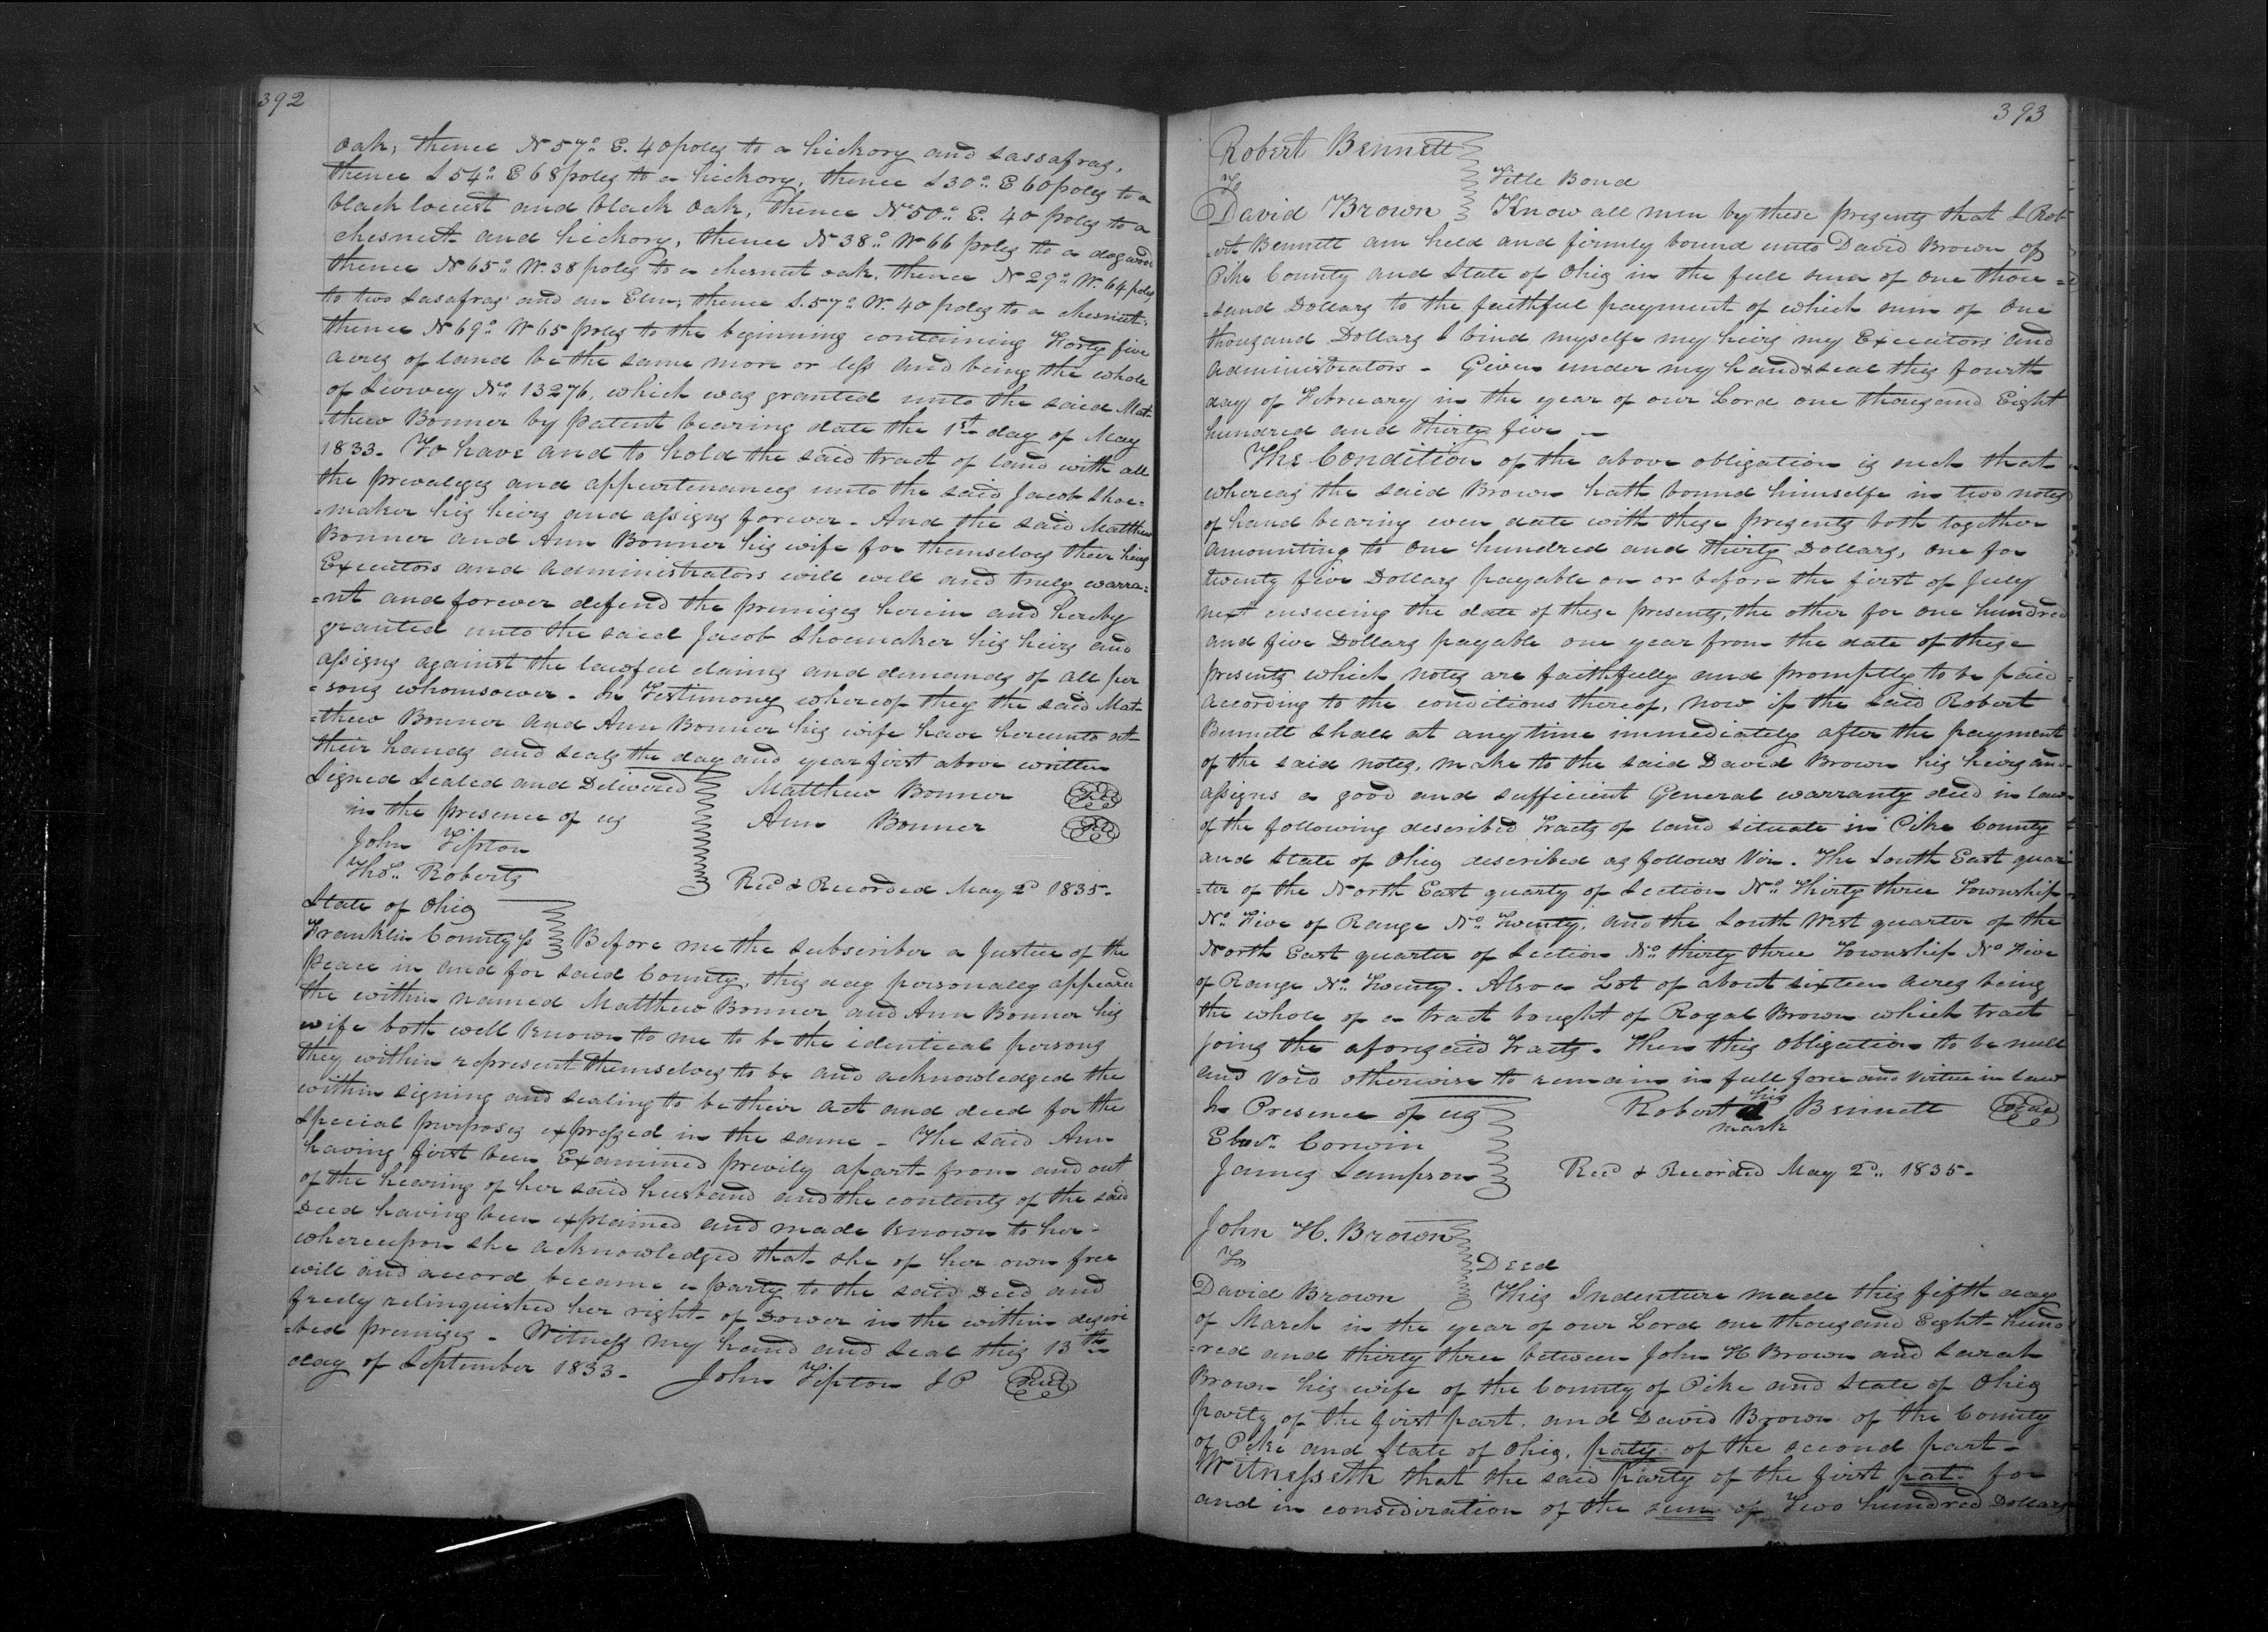 392
oak; thence N 57° E. 40 poles to a hickory and sassafras,
thence S 54° E 68 poles to a hickory, thence S 30° E 60 poles to a
black locust and black oak, thence N 50° E. 40 poles to a
chesnut and hickory, thence N 38° W 66 poles to a dogwood
thence N 65° W. 38 poles to a chesnut oak, thence N 29° W. 64 poles
to two sasafras and an Elm; thence S. 57° W. 40 poles to a chesnut,
thence N 69° W 65 poles to the beginning containing Forty five
acres of land be the same more or less and being the whole
of Survey No. 13276, which was granted unto the said Mat-
-thew Bonner by patent bearing date the 1st day of May
1833. To have and to hold the said tract of land with all
the privaleges and appurtenances unto the said Jacob Shoe-
=maker his heirs and assigns forever - And the said Matthew
Bonner and Ann Bonner his wife for themselves their heirs
Executors and administrators will well and truly warra-
=nt and forever defend the premises herein and hereby
granted unto the said Jacob Shoemaker his heirs and
assigns against the lawful claims and demands of all per
=sons whomsoever. In Testimony whereof they the said Mat-
=thew Bonner and Ann Bonner his wife have hereunto set
their hands and seals the day and year first above written
Signed Sealed and Delivered Matthew Bonner Seal
in the presence of us Ann Bonner Seal
John Tipton
Thos. Roberts Recd & Recorded May 2d 1835-
State of Ohio
Franklin County ss Before me the subscriber a Justice of the
peace in and for said County, this day personally appeared
the within named Matthew Bonner and Ann Bonner his
wife both well known to me to be the identical persons
they within represent themselves to be and acknowledged the
within signing and sealing to be their act and deed for the
special purposes expressed in the same - The said Ann
having first been Examined privily apart from and out
of the hearing of her said husband and the contents of the said
Deed having been explained and made known to her-
whereupon she acknowledged that she of her own free
will and accord became a party to the said Deed and
freely relinquished her right of Dower in the within descri
=bed premises - Witness my hand and seal this 13th
day of September 1833. John Tipton J P Seal
393
Robert Bennett
To Title Bond
David Brown Know all men by these presents that I Rob-
-ert Bennett am held and firmly bound unto David Brown of
Pike County and State of Ohio in the full sum of one thou=
=sand Dollars to the faithful payment of which sum of One
thousand Dollars I bind myself my heirs my Executors and
administrators - Given under my hand & seal this fourth
day of February in the year of our Lord one thousand Eight
hundred and thirty five -
The Condition of the above obligation is such that
whereas the said Brown hath bound himself in two notes
of hand bearing even date with these presents both together
amounting to One hundred and thirty Dollars, one for
twenty five Dollars payable on or before the first of July
next ensueing the date of these presents, the other for one hundred
and five Dollars payable one year from the date of these
presents which notes are faithfully and promptly to be paid
according to the conditions thereof, now if the said Robert
Bennett shall at any time immediately after the payment
of the said notes, make to the said David Brown his heirs and
assigns a good and sufficient General warranty deed in law
of the following described Tracts of land situate in Pike County
and State of Ohio described as follows Viz. The South East quar
-ter of the North East quarty of Section No. Thirty three Township
No. Five of Range No. Twenty, and the South West quarter of the
North East quarter of Section No. thirty three Township No Five
of Range No. Twenty. Also a Lot of about sixteen acres being
the whole of a tract bought of Royal Brown which tract
joins the aforesaid Tracts. Then this obligation to be null
and void otherwise to remain in full force and virtue in law
In Presence of us Robert his mark Bennett Seal
Ebnr. Corwin
James Sampson Recd & Recorded May 2d. 1835-
John H. Brown
To Deed
David Brown This Indenture made this fifth day
of March in the year of our Lord one thousand Eight hund
=red and thirty three between John H Brown and Sarah
Brown his wife of the County of Pike and State of Ohio
party of the first part, and David Brown of the County
of Pike and State of Ohio, paty of the second part-
Witnesseth that the said party of the first pat. for
and in consideration of the sum of Two hundred Dollars